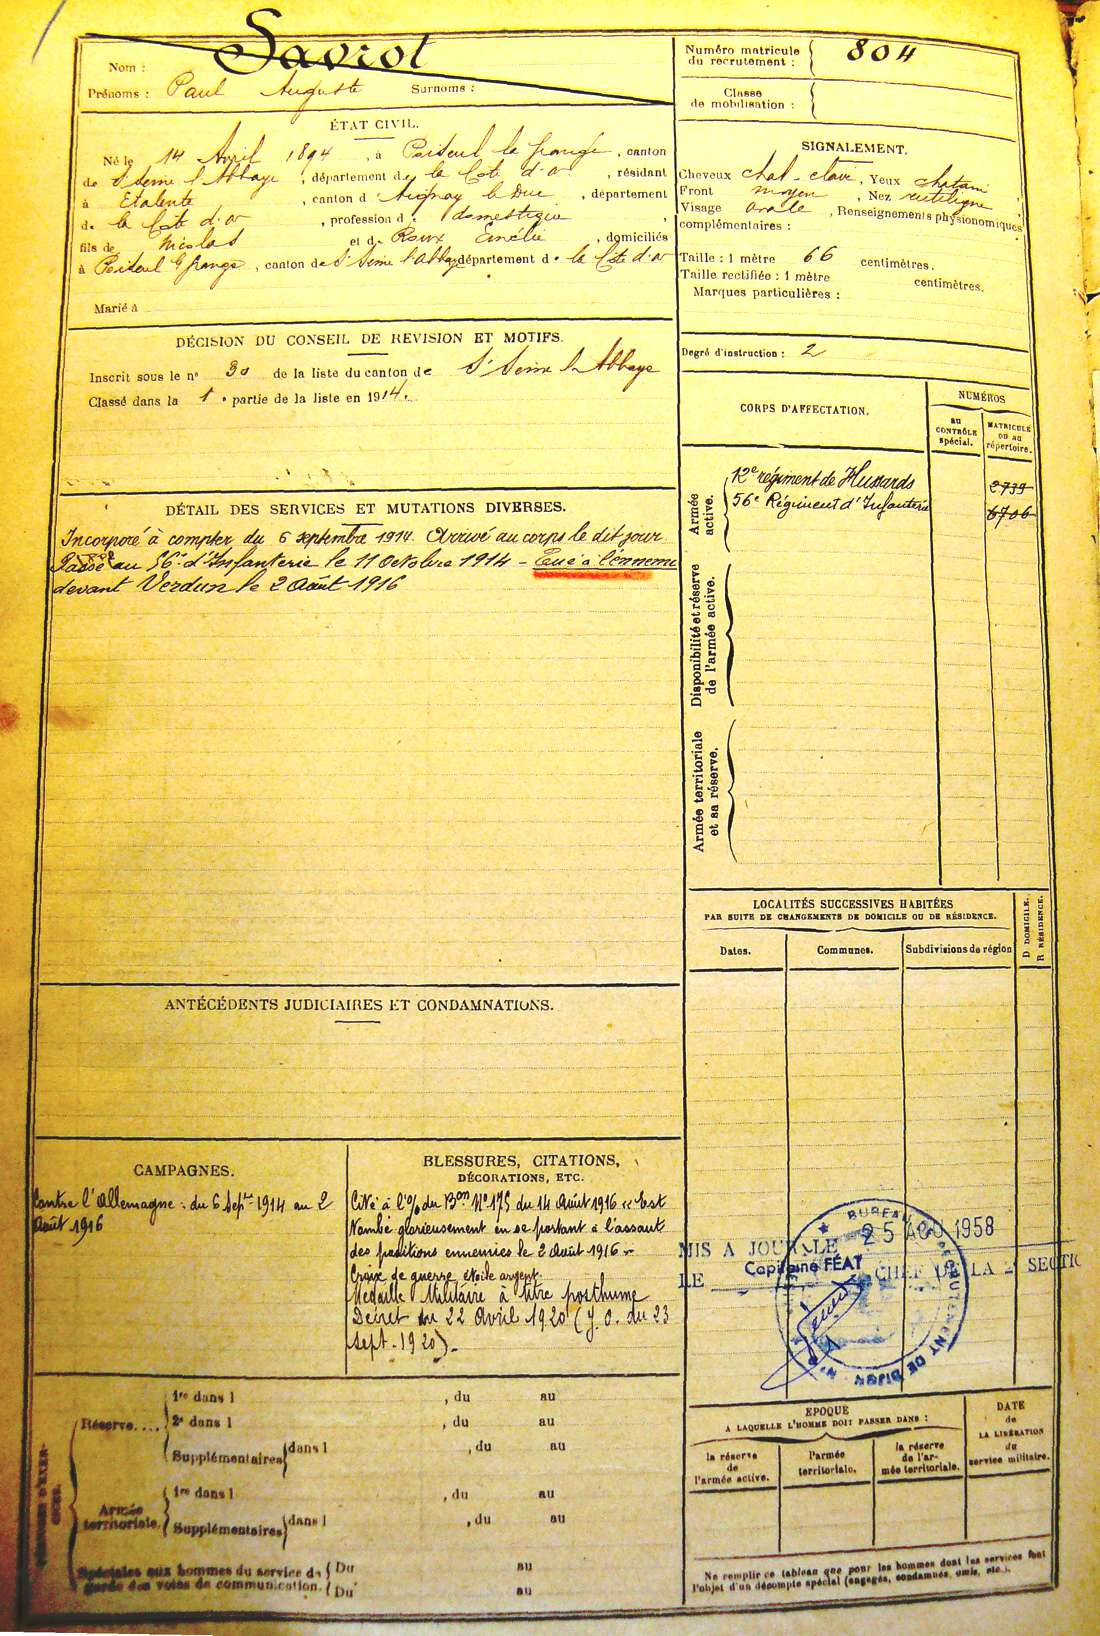 Nom : Savrot
Prénoms : Paul Auguste Surnoms :
Numéro matricule du recrutement : 804
Classe de mobilisation :
ÉTAT CIVIL.
Né le 14 Avril 1894, à Poiseul la Grange, canton
de St Seine l'Abbaye, département de la Côte d'or, résidant
à Etalente, canton d'Aignay le Duc, département
de la Côte d'or, profession de domestique,
fils de Nicolas et de Roux Emélie, domiciliés
à Poiseul la Grange, canton de St Seine l'Abbaye département de la Côte d'or
Marié à
SIGNALEMENT.
Cheveux chat-clair, Yeux chatain
Front moyen, Nez rectiligne,
Visage ovale, Renseignements physionomiques
complémentaires :
Taille : 1 mètre 66 centimètres.
Taille rectifiée : 1 mètre centimètres.
Marques particulières :
Degré d'instruction : 2
DÉCISION DU CONSEIL DE REVISION ET MOTIFS.
Inscrit sous le nº 30 de la liste du canton de St Seine l'Abbaye
Classé dans la 1e partie de la liste en 1914.
CORPS D'AFFECTATION.
NUMÉROS
au CONTRÔLE spécial.
MATRICULE OU AU répertoire.
Armée active.
12e régiment de Hussards 2739
56e Régiment d'Infanterie 6706
Disponibilité et réserve de l'armée active.
Armée territoriale et sa réserve.
DÉTAIL DES SERVICES ET MUTATIONS DIVERSES.
Incorporé à compter du 6 septembre 1914. Arrivé au corps le dit jour
Passé au 56e d'Infanterie le 11 Octobre 1914 - Tué à l'ennemi
devant Verdun le 2 Août 1916
LOCALITÉS SUCCESSIVES HABITÉES
PAR SUITE DE CHANGEMENTS DE DOMICILE OU DE RÉSIDENCE.
Dates.
Communes.
Subdivisions de région
D DOMICILE.
R RÉSIDENCE.
ANTÉCÉDENTS JUDICIAIRES ET CONDAMNATIONS.
CAMPAGNES.
Contre l'Allemagne : du 6 Sept 1914 au 2
Août 1916
BLESSURES, CITATIONS,
DÉCORATIONS, ETC.
Cité à l'O/ du Bon No 175 du 14 Août 1916 « Est
tombé glorieusement en se portant à l'assaut
des positions ennemies le 2 Août 1916 »
Croix de guerre étoile argent
Médaille Militaire à titre posthume
Décret du 22 Avril 1920 (J.O. du 23
sept. 1920).
25 AOU 1958
MIS A JOUR LE
Capitaine FÉAT
LE CHEF DE LA 2 SECTIO
BUREAU DE RECRUTEMENT DE DIJON
Réserve....
1re dans l , du au
2e dans l , du au
Supplémentaires dans l , du au
Armée territoriale.
1re dans l , du au
Supplémentaires dans l , du au
Spéciales aux hommes du service de
garde des voies de communication.
Du au
Du au
EPOQUE
A LAQUELLE L'HOMME DOIT PASSER DANS :
la réserve de l'armée active.
l'armée territoriale.
la réserve de l'armée territoriale.
DATE
de
LA LIBÉRATION
du
service militaire.
Ne remplir ce tableau que pour les hommes dont les services font
l'objet d'un décompte spécial (engagés, condamnés, omis, etc.).